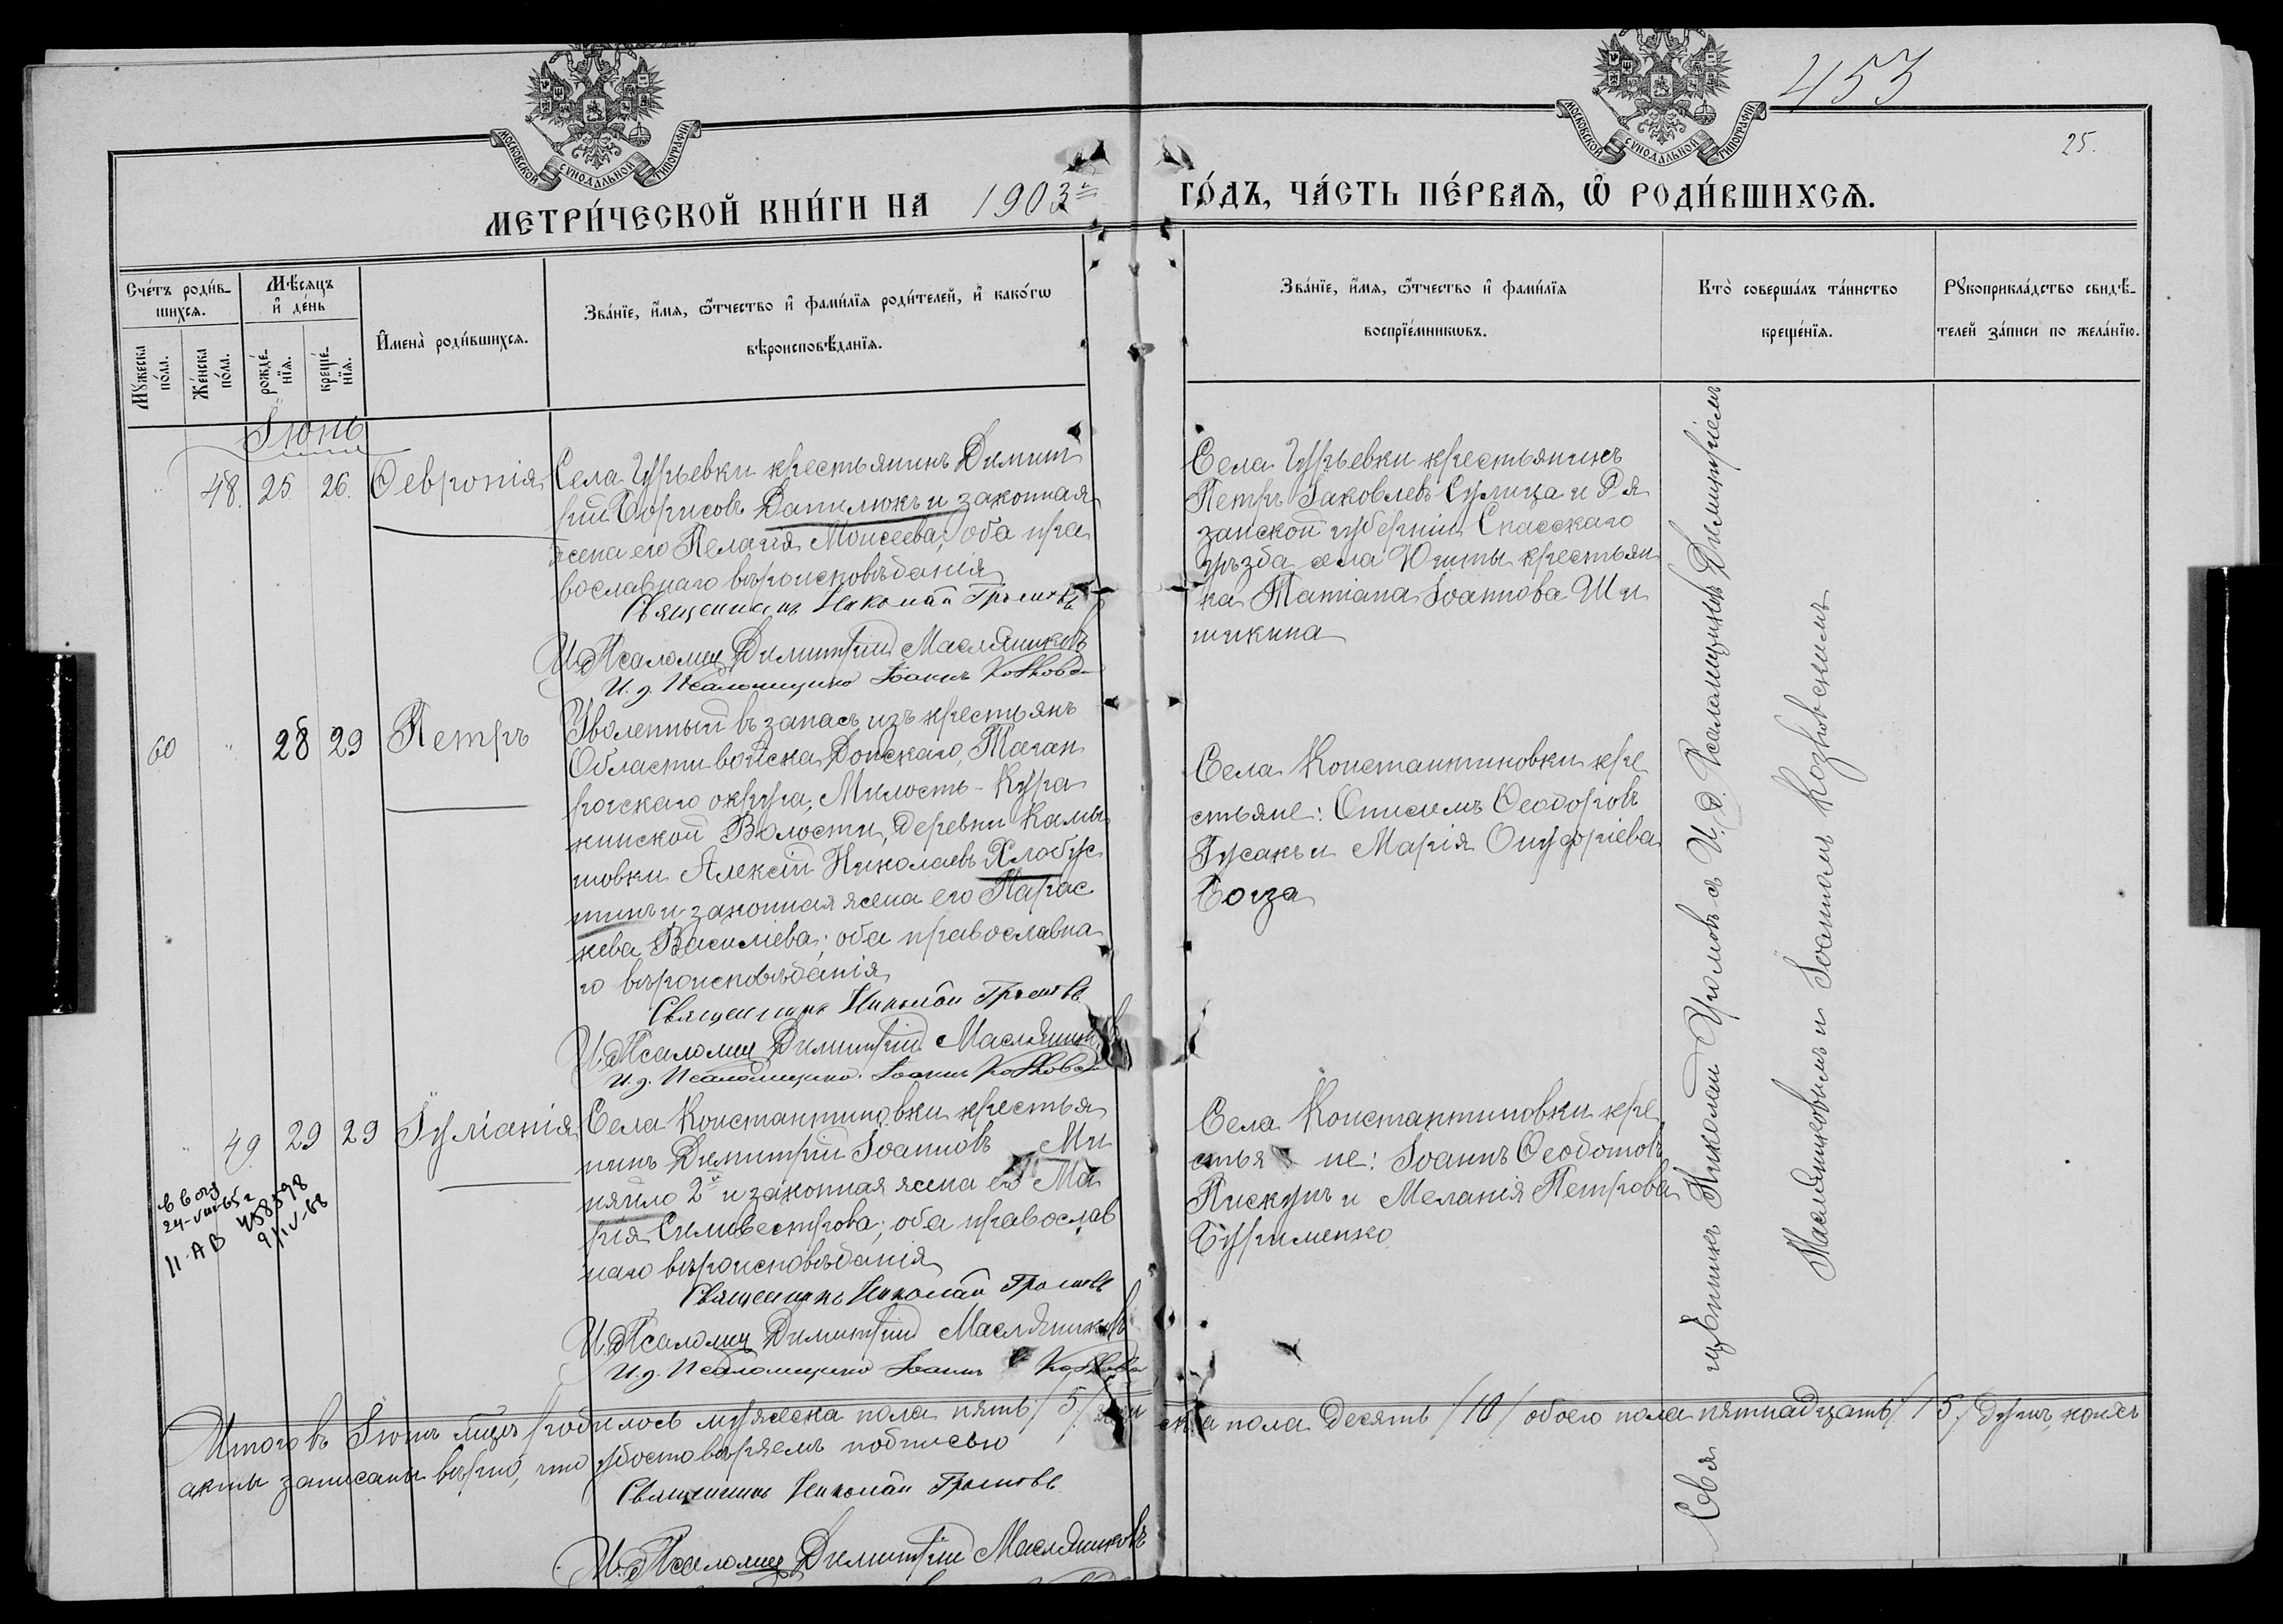 МОСКОВСКОЙ СУНОДАЛЬНОЙ ТИПОГРАФІИ
МОСКОВСКОЙ СУНОДАЛЬНОЙ ТИПОГРАФІИ
453
25.
МЕТРИ́ЧЕСКОЙ КНИ́ГИ НА 1903
ГО́ДЪ, ЧА́СТЬ ПЕ́РВАѦ, Ѡ҆ РОДИ́ВШИХСѦ.
Сче́тъ роди́в-
шихсѧ.
Мꙋ́жеска
по́ла.
Же́нска
по́ла.
Мѣ́сѧцъ
и҆ де́нь
рожде́-
нїѧ.
креще́-
нїѧ.
И҆мена̀ роди́вшихсѧ.
Зва́нїе, и҆́мѧ, ѻ҆́тчество и҆ фами́лїѧ роди́телей, и҆ како́гѡ
вѣроисповѣ́данїѧ.
Зва́нїе, и҆́мѧ, ѻ҆́тчество и҆ фами́лїѧ
воспрїе́мникѡвъ.
Кто̀ соверша́лъ та́инство
креще́нїѧ.
Рꙋкоприкла́дство свидѣ́-
телей за́писи по жела́нїю.
Іюнь
48. 25 26. Ѳевронія
Села Гурьевки крестьянинъ Димит
рій Борисовъ Данилюкъ и законная
жена его Пелагія Моисеева; оба пра
вославнаго вѣроисповѣданія
Священникъ Николай
И.д. Псаломщ Димитрій Масляниковъ
И.д. Псаломщика Іоаннъ
Села Гурьевки крестьянинъ
Петръ Іаковлевъ Сулица и Ря
занской губерніи Спасскаго
уѣзда села Юшты крестьян
ка Татіана Іоаннова Ши
шкина
60 " 28 29 Петръ
Уволенный въ запасъ изъ крестьянъ
Области войска Донскаго, Таган
рогскаго округа, Милость-Кура
кинской Волости, деревни Камы
шовки Алексій Николаевъ Хлобус
тинъ и законная жена его Парас
кева Василіева; оба православна
го вѣроисповѣданія
Священникъ Николай
И.д. Псаломщ Димитрій Масляниковъ
И.д. Псаломщика Іоаннъ
Села Константиновки кре
стьяне: Онисимъ Ѳеодоровъ
Гусакъ и Марія Онуфріева
Богза
" 49. 29 29 Іуліанія
Села Константиновки крестья
нинъ Димитрій Іоанновъ Ми
няйло 2й и законная жена его Ма
рія Силивестрова; оба православ
наго вѣроисповѣданія
Священникъ Николай
И.д. Псаломщ Димитрій Масляниковъ
И.д. Псаломщика Іоаннъ
Села Константиновки кре
стья не: Іоаннъ Ѳеодотовъ
Пискунъ и Меланія Петрова
Бурименко
24-VIII-65 г
II-АВ 458598
9/IV-68
Священникъ Николай съ И. д. Псаломщикъ Димитріемъ
Масляниковымъ и Іоанномъ Козловскимъ
Итого въ Іюнѣ мцѣ родилось мужеска пола пять /5/ жен ска пола десять /10/ обоего пола пятнадцать /15/ душъ, коихъ
акты записаны вѣрно, что удостовѣряемъ подписью
Священникъ Николай
И.д. Псаломщ Димитрій Масляниковъ